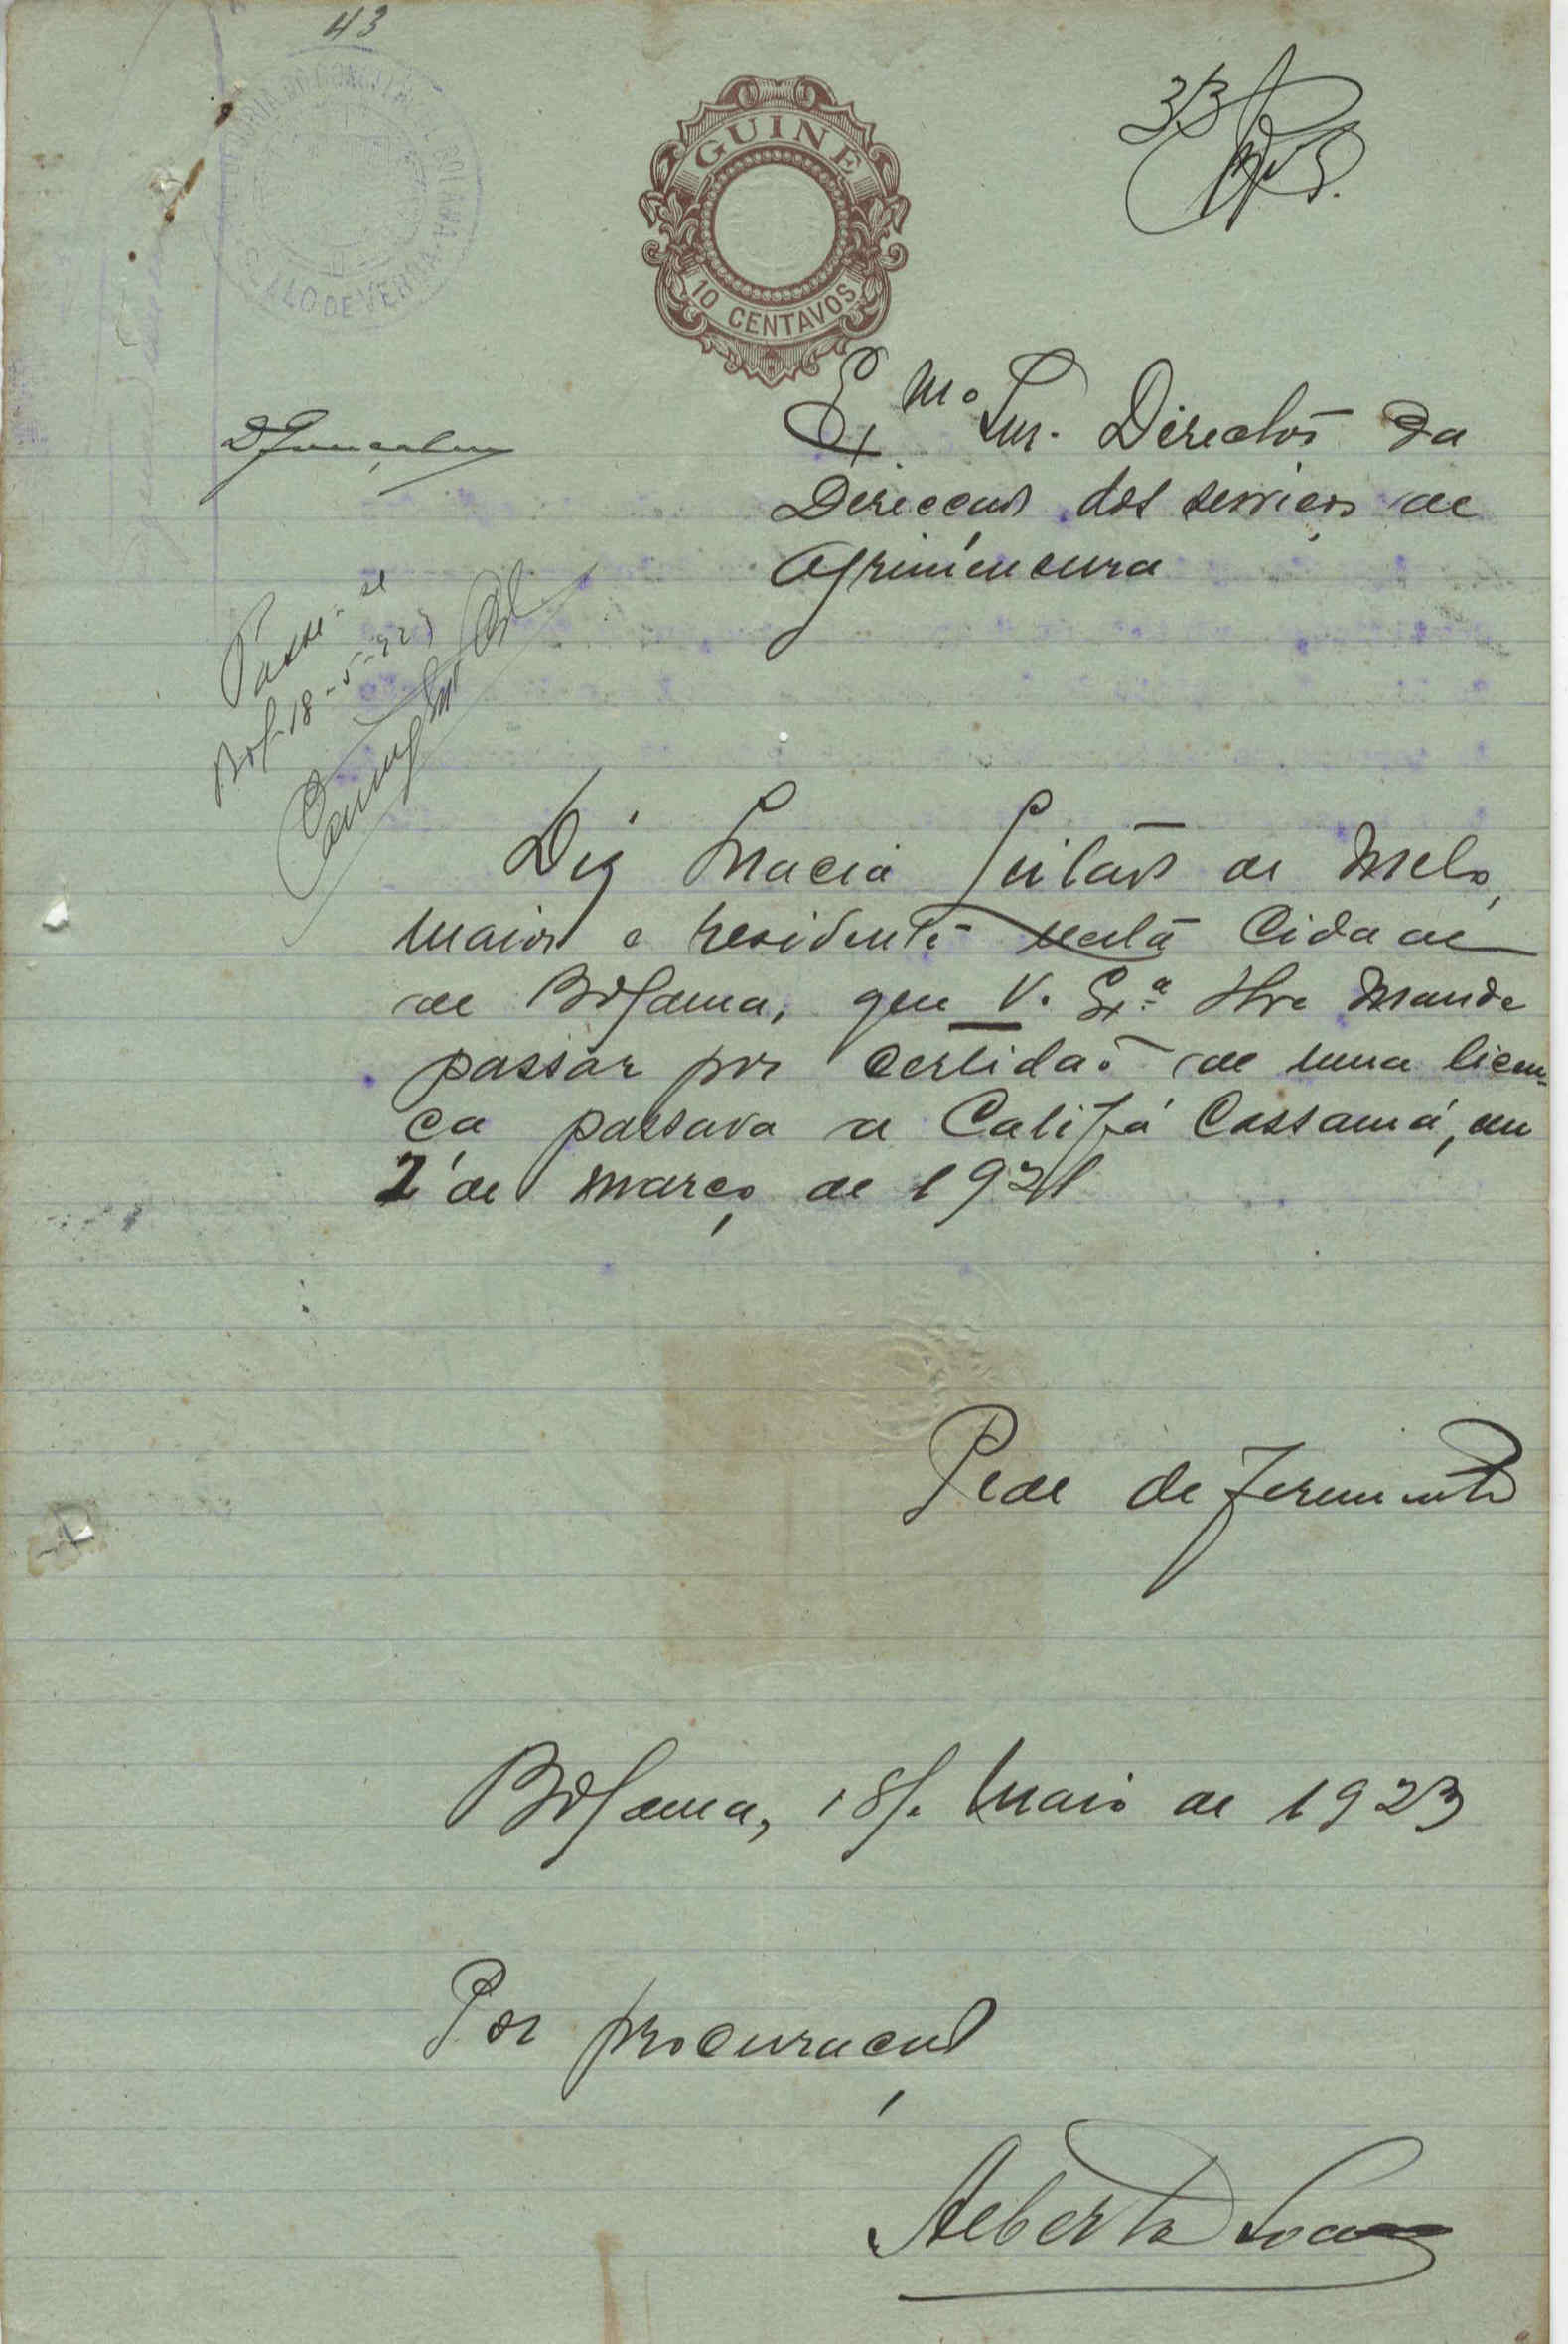 43
GUINÉ
10 CENTAVOS
3/3
SELO DE VERBA
Ex.mo Snr. Director da
Direcção dos serviços de
Agrimensura
Passe-se
Bol. 18-5-923
Diz Maria Leitão de Melo,
maior e residente nesta Cidade
de Bolama, que V. Ex.ª lhe mande
passar por certidão de uma licen-
ça passada a Califá Cassamá, em
2 de março de 1921
Pede deferimento
Bolama, 18/. Maio de 1923
Por procuração
Alberto Soares